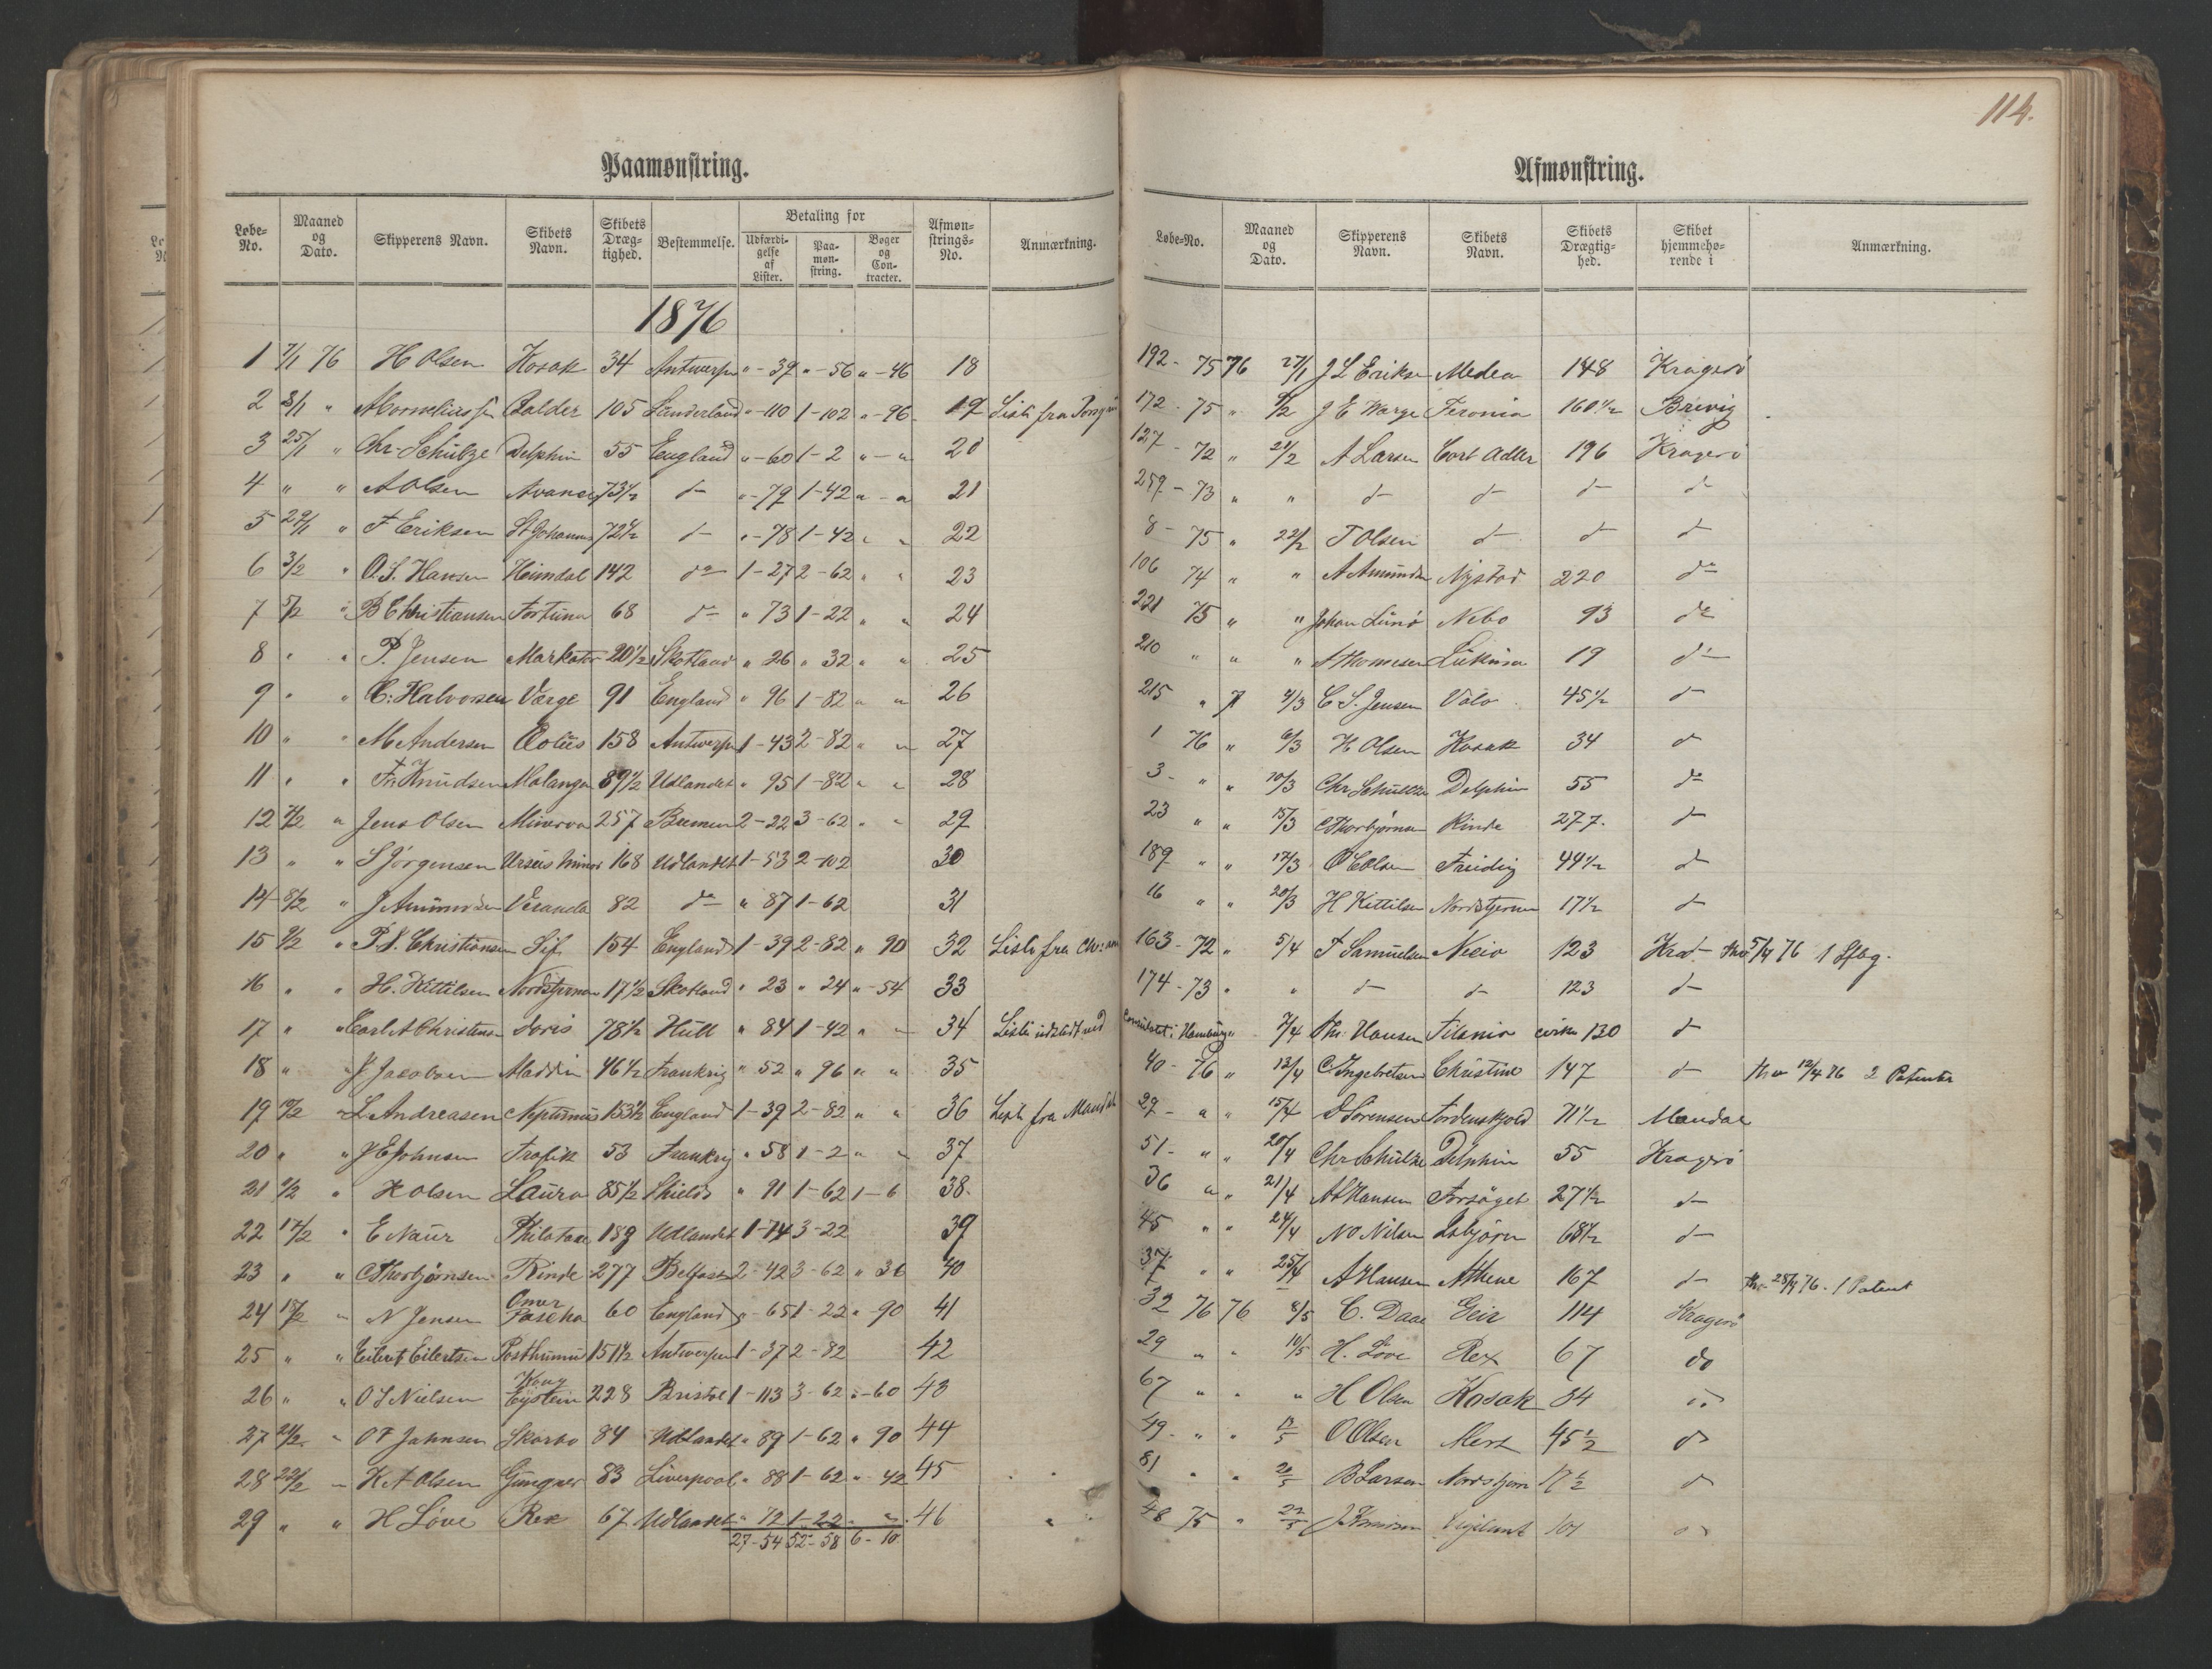 114.
Paamønstring.
Løbe-No. Maaned og Dato. Skipperens Navn. Skibets Navn. Skibets Dræg-tighed. Bestemmelse. Betaling for Udfærdi-gelse af Lister. Paa-møn-string. Bøger og Con-tracter. Afmøn-strings-No. Anmærkning.
1876
1 7/1 76 H Olsen Kosak 34 Antwerpn " - 39 " - 56 " - 46 18
2 8/1 " Balder 105 Sunderland " - 110 1 - 102 " - 96 19 Liste fra
3 25/1 " Chr. Schultze Delphin 55 England " - 60 1 - 2 " - " 20
4 " " A Olsen 73 1/2 d- " - 79 1 - 42 " - " 21
5 29/1 " F Eriksen St Johannes 72 1/2 d- " - 78 1 - 42 " " 22
6 3/2 " O. S. Hansen Heimdal 142 do 1 - 27 2 - 62 " " 23
7 5/2 " B Christiansen Fortuna 68 do " 73 1 - 22 " " 24
8 " " P. Jensen Markator 20 1/2 Skotland " 26 " 32 " " 25
9 " " C. Halvorsen Værge 91 England " 96 1 - 82 " " 26
10 " " M Andersen Æolus 158 Antwerpn 1 - 43 2 - 82 " " 27
11 " " Fr. Knudsen Malanga 89 1/2 Udlandet " 95 1 - 82 " " 28
12 7/2 " Jens Olsen Minerva 257 Bremen 2 - 22 3 - 62 " " 29
13 " " S Jørgensen Ursus Minor 168 Udlandet 1 - 53 2 - 102 30
14 8/2 " J Amundsen Veranda 82 do " 87 1 - 62 31
15 9/2 " P. N. Christiansen Sif 154 England 1 - 39 2 - 82 " 90 32 Liste fra
16 " " H. Kittilsen Nordstjernen 17 1/2 Skotland " 23 " 24 " - 54 33
17 " " Carl A Christensen Doris 78 1/2 Hull " 84 1 - 42 " " 34 Liste udstedt ved
18 " " J Jacobsen Aladdin 46 1/2 Frankrig " 52 " 96 " " 35
19 10/2 " L Andreasen Neptunus 153 1/2 England 1 - 39 2 - 82 " " 36 Liste fra Mandal
20 " " J E Johnsen Trafik 53 Frankrig " 58 1 - 2 " " 37
21 " H Olsen Laura 85 1/2 Shields " 91 1 - 62 1 - 6 38.
22 17/2 " E Naur 189 Udlandet 1 - 74 3 - 22 39
23 " " C Thorbjørnsen Rinde 277 Belfast 2 - 42 3 - 62 " 36 40
24 " N Jensen Omer Pascha 60 England " 65 1 - 22 " 90 41
25 " " Eilert Eilertsen Posthumus 151 1/2 Antwerpen 1 - 37 2 - 82 42
26 " " O S Nielsen Kong Eystein 228 Bristol 1 - 113 3 - 62 " - 60 43
27 21/2 " O F Jahnsen Skarbo 84 Udlandet " 89 1 - 62 " 90 44
28 22/2 " K A Olsen Gungner 83 Liverpool " 88 1 - 62 " 42 45
29 " " H Løve Rex 67 Udlandet " 72 1 - 22 " " 46
27 - 54 52 - 58 6 - 10
Afmønstring.
Løbe-No. Maaned og Dato. Skipperens Navn. Skibets Navn. Skibets Drægtig-hed. Skibet hjemmehø-rende i Anmærkning.
192 - 75 76 27/1 J L Eriksen Medea 148 Kragerö
172 - 75 " J E Warge Feronia 160 1/2 Brevig
127 - 72 " 21/2 A Larsen Cort Adler 196 Kragerö
259 - 73 " " d- d- d- d-
8 - 75 " 22/2 T Olsen d- d- d-
106 74 " " A Amundsen Nystad 220 do
221 75 " " Johan Lunö Nebo 93 do
210 " " " A Thomesen 19 do
215 " " 4/3 C S. Jensen Valo 45 1/2 d-
1 76 " 6/3 H Olsen Kosak 34 d
3 - " " 10/3 Chr Schultze Delphin 55 do
23 " " 15/3 C Thorbjørnsen Rinde 277. d-
189 " " 17/3 O C Olsen 44 1/2 d
16 " " 20/3 H Kittilsen Nordstjernen 17 1/2 d-
163 - 72 " 5/4 T Samuelsen 123 5/4 76 1
174 - 73 " " d- d- 123 d-
Consulatet i Hamburg 7/4 Hansen Titania cirka 130 d
40 - 76 " 12/4 C Ingebretsen Christine 147 d- 12/4 76 2 Patenter
29 - " " 15/4 S Sörensen Tordenskjold 71 1/2 Mandal
51 - " " 20/4 Chr Schultze Delphin 55 Kragerö
36 " " 21/4 A Hansen Forsöget 27 1/2 d-
45 " " 24/4 N O Nilsen Isbjörn 68 1/2 d-
37 " " 25/4 A Hansen Athene 167 d- 28/4 76. 1 Patent
32 76 76 8/5 C. Daae Geir 114 Kragerö
29 " " 10/5 H. Löve Rex 67 do
67 " " " H Olsen Kosak 34 do
49 " " O Olsen 45 1/2 do
81 " " 20/5 B Larsen Nordstjern 17 1/2 do
48 75 " 22/5 J Knudsen Vigilant 101 do